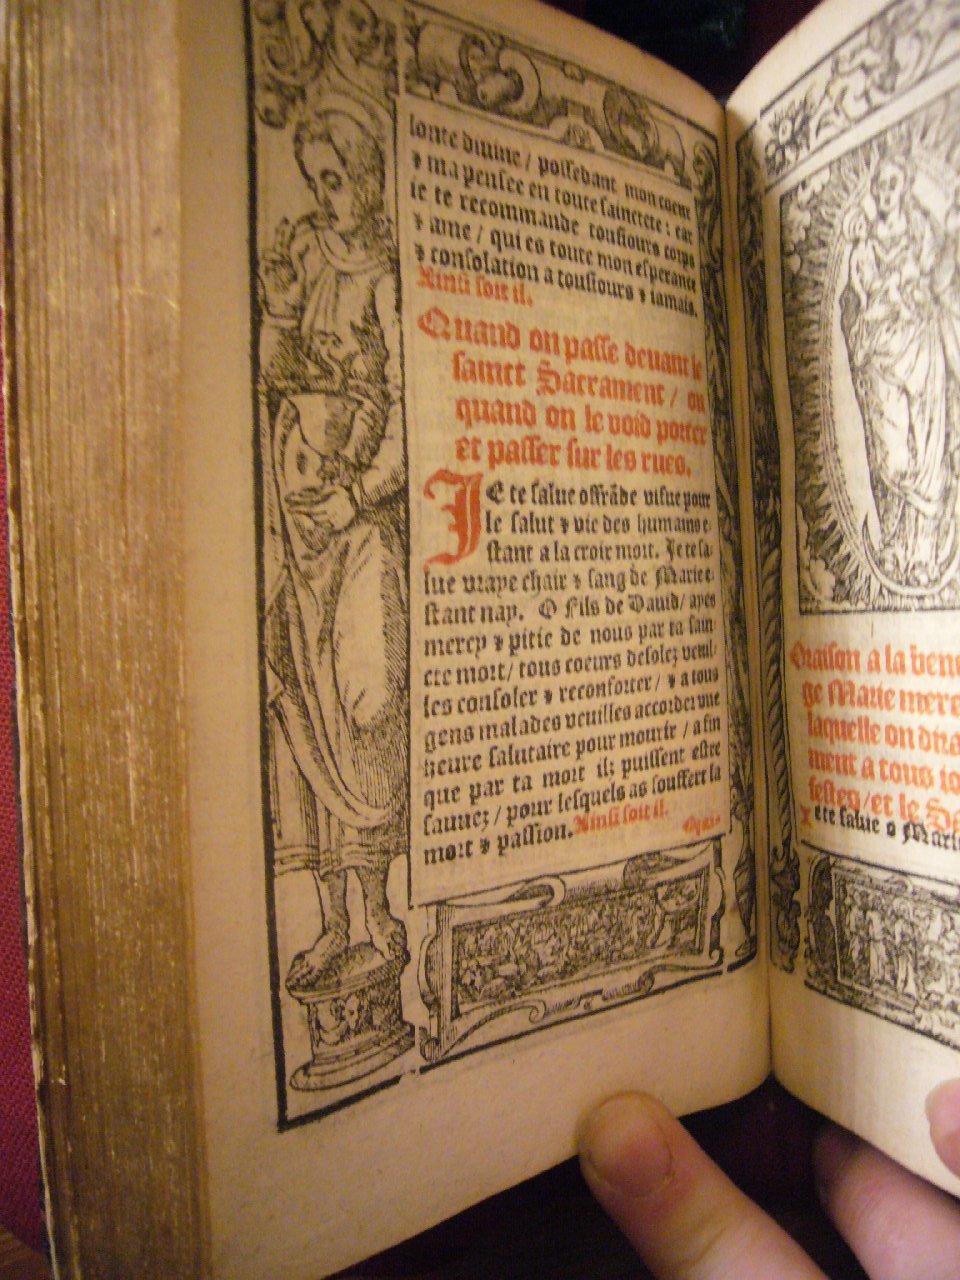 lonte diuine / possedant mon coeur
⁊ ma pensee en toute sainctete : car
ie te recommande tousiours corps
⁊ ame / qui es toute mon esperance
⁊ consolation a tousiours ⁊ iamais.
Ainsi soit il.
Quand on passe deuant le
sainct Sacrament / ou
quand on le void porter
et passer sur les rues.
JE te salue offrāde visue pour
le salut ⁊ vie des humains e-
stant a la croix mort. Je te sa-
lue vraye chair ⁊ sang de Marie e-
stant nay. O Fils de Dauid / ayes
mercy ⁊ pitie de nous par ta sain-
cte mort / tous coeurs desolez veul-
les consoler ⁊ reconforter / ⁊ a tous
gens malades veuilles accorder vne
heure salutaire pour mourir / a fin
que par ta mort ilz puissent estre
sauuez / pour lesquels as souffert la
mort ⁊ passion. Ainsi soit il.
Oraison a la bene
ge Marie mere
laquelle on dira
ment a tous io
festes / et le
te salue o Marie